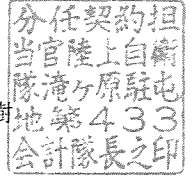 分任契約担
当官陸上自衛
隊滝ヶ原駐屯
地第433
会計隊長之印